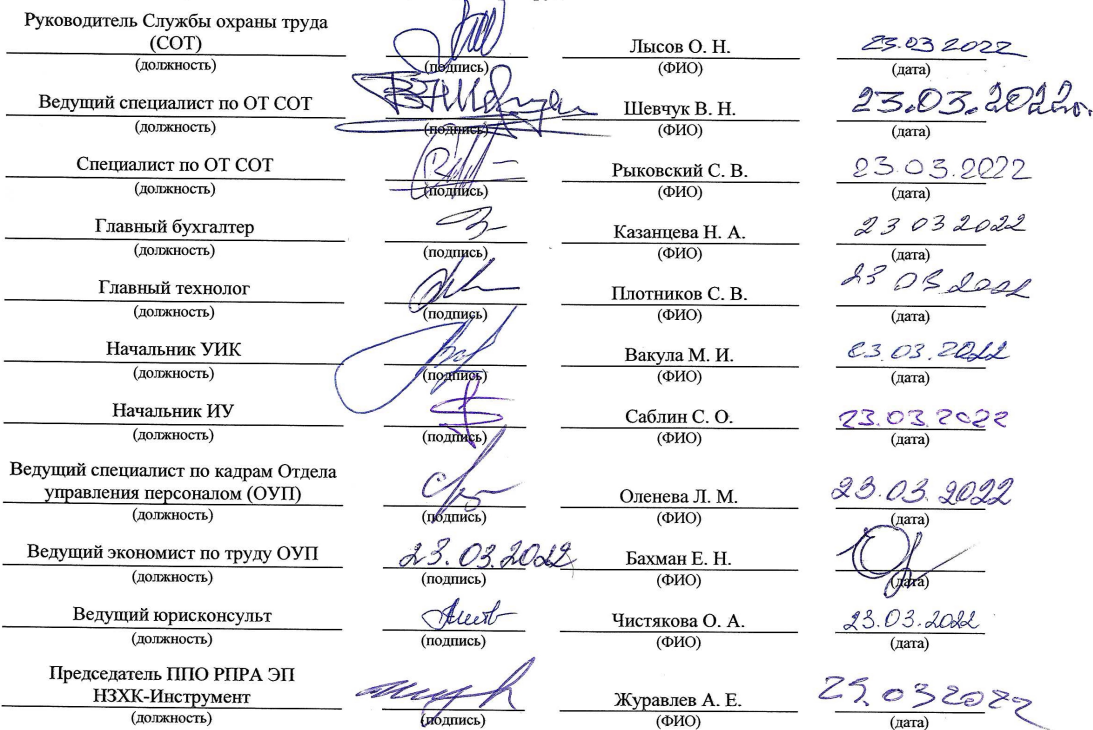 Руководитель Службы охраны труда
(СОТ) Лысов О. Н. 23.03 2022
(должность) (подпись) (ФИО) (дата)
Ведущий специалист по ОТ СОТ Шевчук В. Н. 23.03.2022г.
(должность) (подпись) (ФИО) (дата)
Специалист по ОТ СОТ Рыковский С. В. 23.03.2022
(должность) (подпись) (ФИО) (дата)
Главный бухгалтер Казанцева Н. А. 23 03 2022
(должность) (подпись) (ФИО) (дата)
Главный технолог Плотников С. В. 23 03 2022
(должность) (подпись) (ФИО) (дата)
Начальник УИК Вакула М. И. 23.03.2022
(должность) (подпись) (ФИО) (дата)
Начальник ИУ Саблин С. О. 23.03.2022
(должность) (подпись) (ФИО) (дата)
Ведущий специалист по кадрам Отдела
управления персоналом (ОУП) Оленева Л. М. 23.03.2022
(должность) (подпись) (ФИО) (дата)
Ведущий экономист по труду ОУП 23.03.2022 Бахман Е. Н.
(должность) (подпись) (ФИО) (дата)
Ведущий юрисконсульт Чистякова О. А. 23.03.2022
(должность) (подпись) (ФИО) (дата)
Председатель ППО РПРА ЭП
НЗХК-Инструмент Журавлев А. Е. 03 2022
(должность) (подпись) (ФИО) (дата)